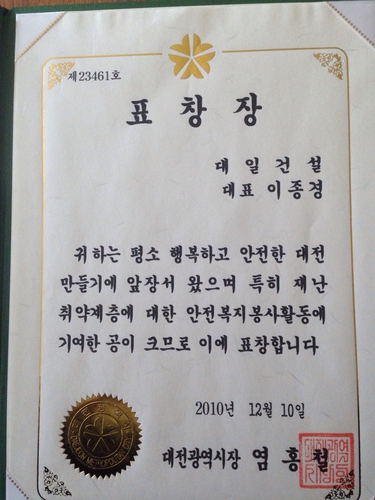 제23461호
표창장
대일건설
대표 이종경
귀하는 평소 행복하고 안전한 대전
만들기에 앞장서 왔으며 특히 재난
취약계층에 대한 안전복지봉사활동에
기여한 공이 크므로 이에 표창합니다
2010년 12월 10일
대전광역시장 염홍철